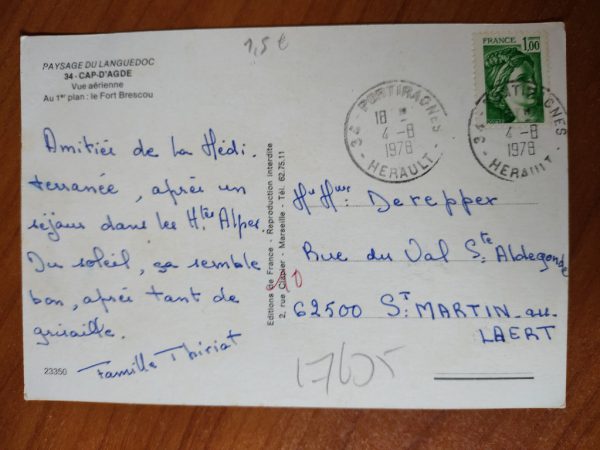 1,5 €
PAYSAGE DU LANGUEDOC
34 - CAP-D'AGDE
Vue aérienne
Au 1er plan : le Fort Brescou
Amitiée de la Médi-
terranée, après un
séjour dans les Htes Alpes.
Du soleil, ça semble
bon, après tant de
grisaille.
Famille Thiriat
23350
Editions de France - Reproduction interdite
2, rue Clapier - Marseille - Tél. 62.75.11
FRANCE 1,00
34 - PORTIRAGNES -
18 H
4 - 8
1978
HERAULT
34 - PORTIRAGNES -
4 - 8
1978
HERAULT
Mr Mme Derepper
Rue du Val Ste Aldegonde
62500 ST MARTIN-au-
LAERT
10